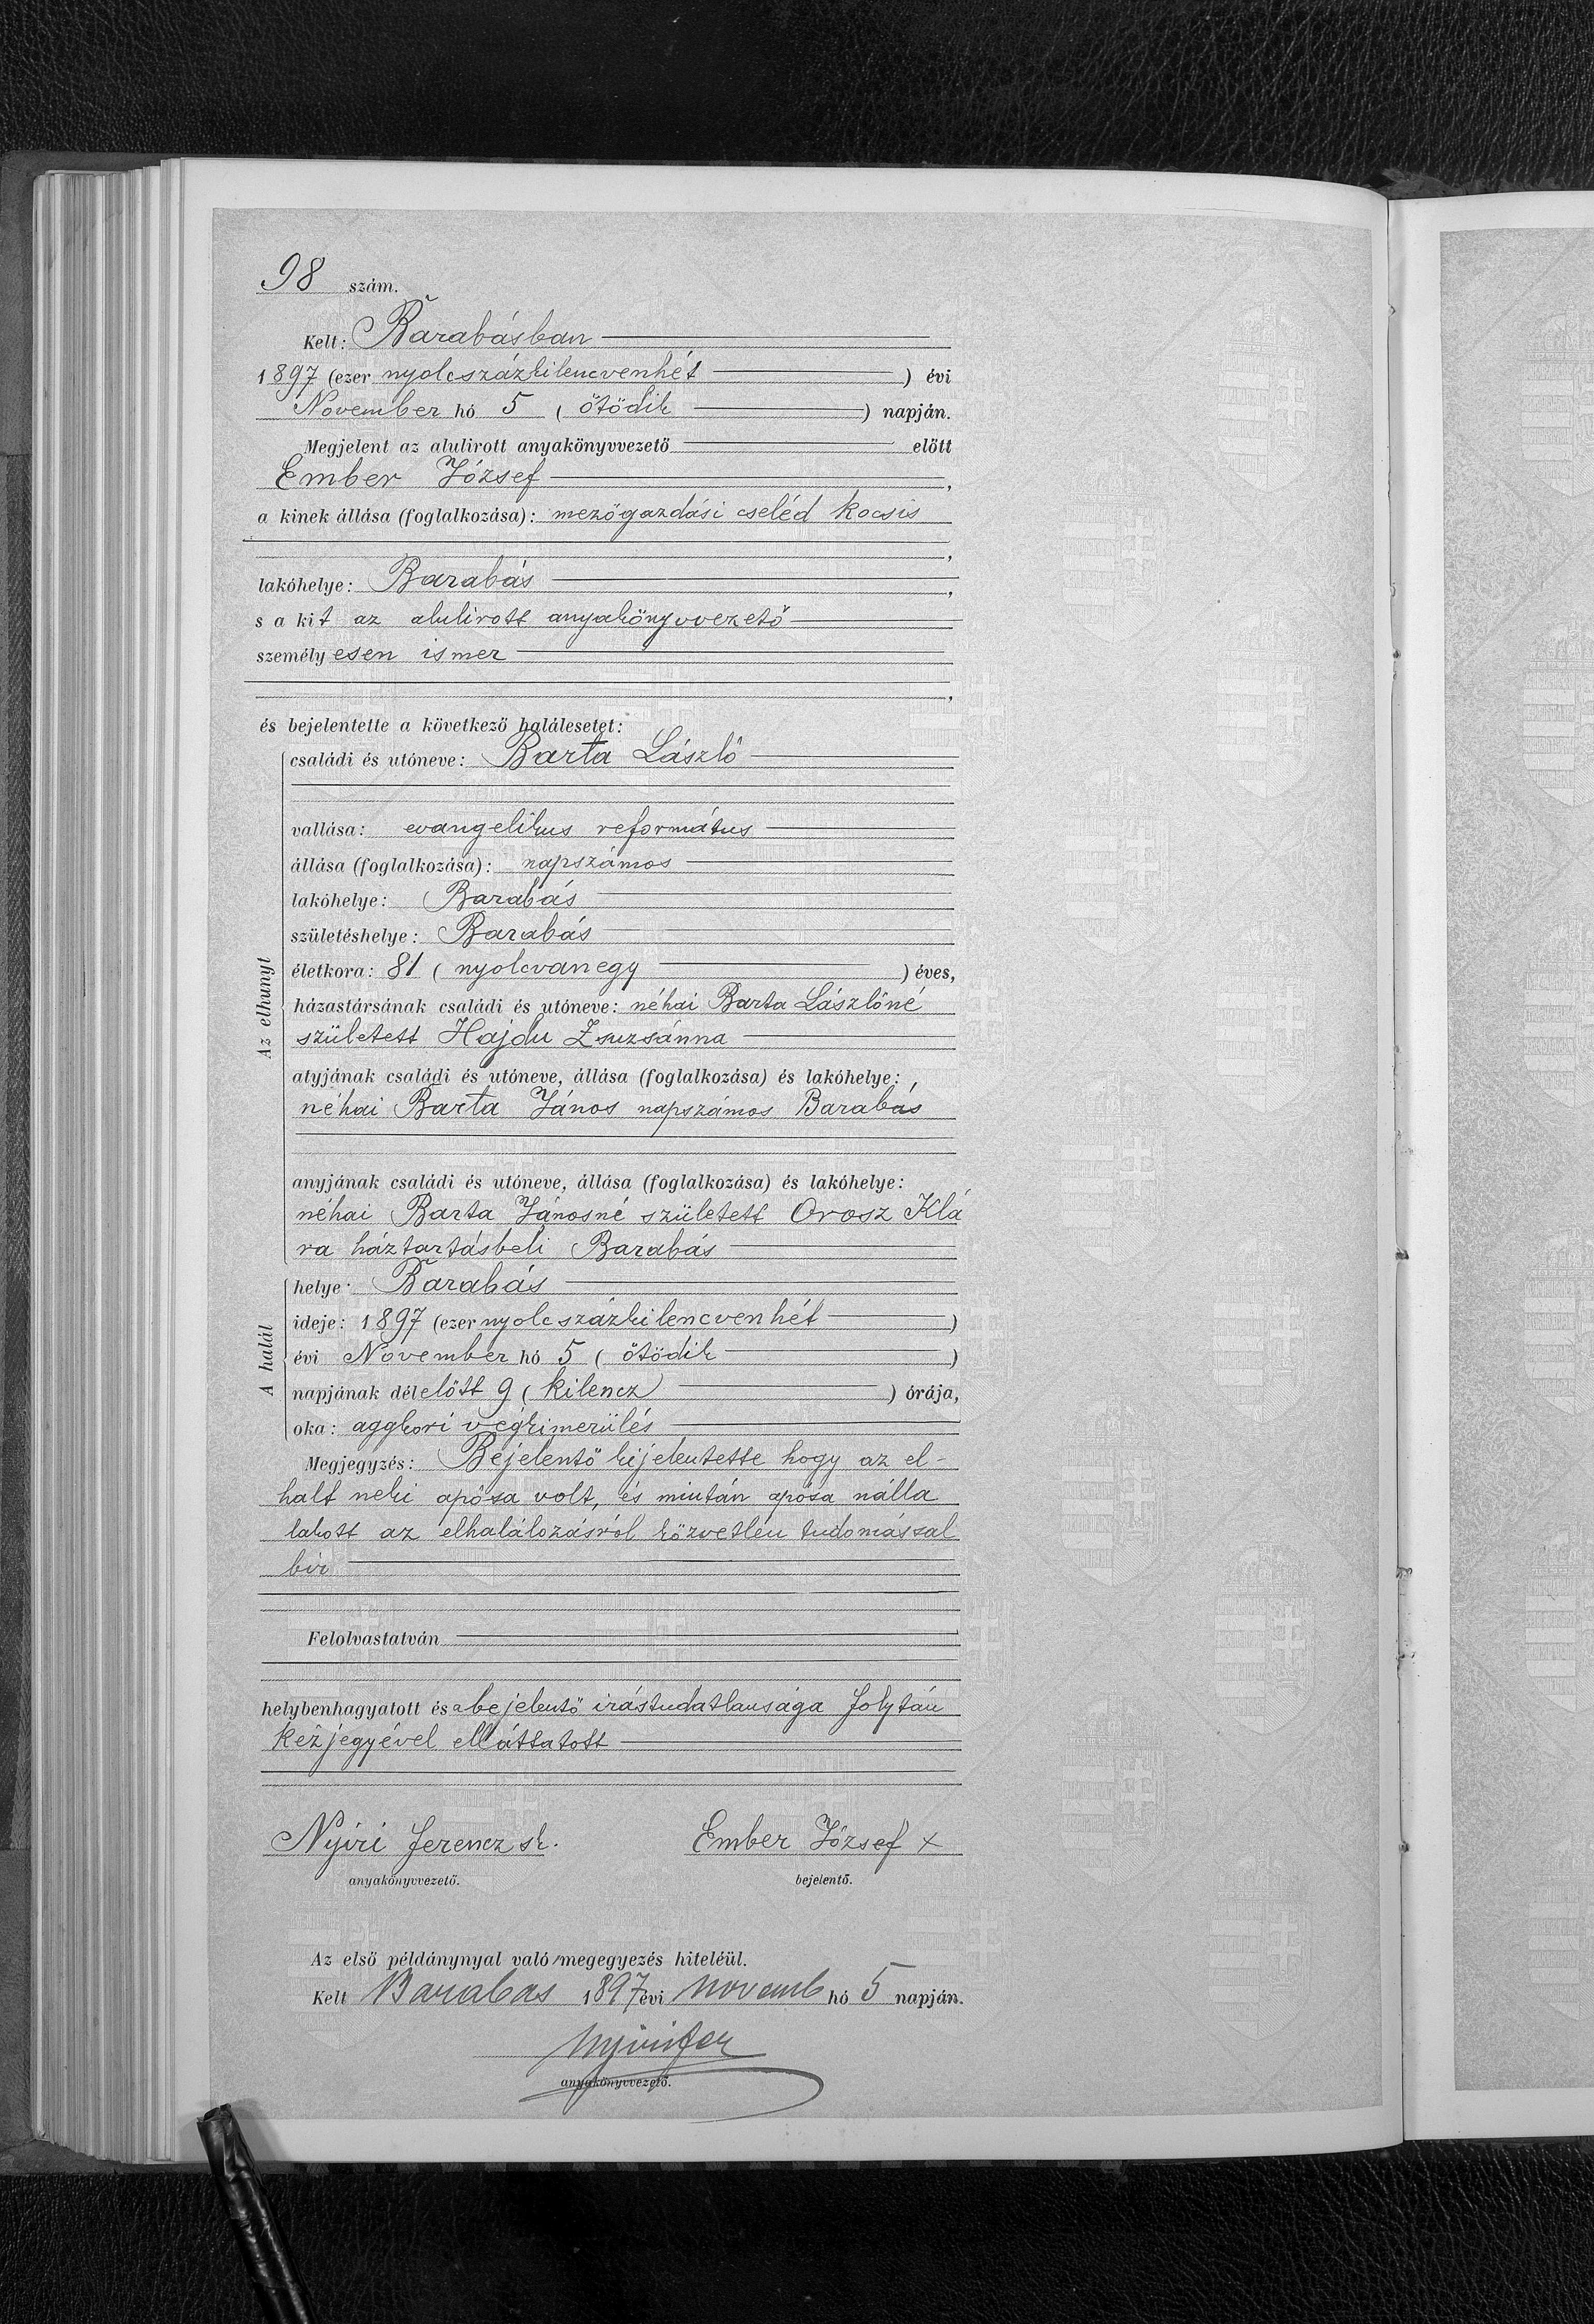 98 szám.
Kelt: Barabásban
1897 (ezer nyolcszázkilencvenhét ) évi
November hó 5 ( ötödik ) napján.
Megjelent az alulirott anyakönyvvezető előtt
Ember József ,
a kinek állása (foglalkozása): mezőgazdási cseléd kocsis
,
lakóhelye: Barabás ,
s a kit az alulirott anyakönyvvezető
személyesen ismer
,
és bejelentette a következő halálesetet:
Az elhunyt
családi és utóneve: Barta László
vallása: evangelikus református
állása (foglalkozása): napszámos
lakóhelye: Barabás
születéshelye: Barabás
életkora: 81 ( nyolcvanegy ) éves,
házastársának családi és utóneve: néhai Barta Lászlóné
született Hajdu Zsuzsánna
atyjának családi és utóneve, állása (foglalkozása) és lakóhelye:
néhai Barta János napszámos Barabás
anyjának családi és utóneve, állása (foglalkozása) és lakóhelye:
néhai Barta Jánosné született Orosz Klá
ra háztartásbeli Barabás
A halál
helye: Barabás
ideje: 1897 (ezer nyolcszázkilencvenhét )
évi November hó 5 ( ötödik )
napjának délelőtt 9 ( kilencz ) órája,
oka: aggkori végkimerülés
Megjegyzés: Bejelentő kijelentette hogy az el-
halt neki apósa volt, és miután apósa nálla
lakott az elhalálozásról közvetlen tudomással
bir
Felolvastatván
helybenhagyatott és a bejelentő irástudatlansága folytán
kézjegyével elláttatott
Nyiri Ferencz sk. Ember József x
anyakönyvvezető. bejelentő.
Az első példánynyal való megegyezés hiteléül.
Kelt Barabas 1897 évi novemb hó 5 napján.
Nyiri Fer
anyakönyvvezető.